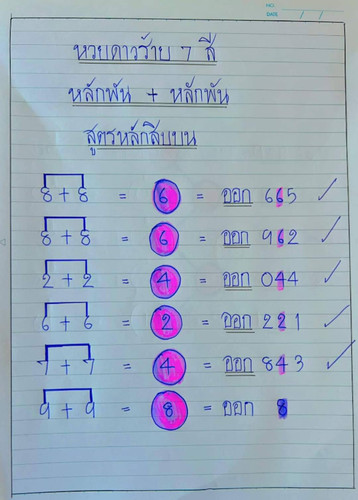 NO.
DATE / /
หวยดาวร้าย 7 สี
หลักพัน + หลักพัน
สูตรหลักสิบบน
8 + 8 = 6 = ออก 665 ✓
8 + 8 = 6 = ออก 962 ✓
2 + 2 = 4 = ออก 044 ✓
6 + 6 = 2 = ออก 221 ✓
7 + 7 = 4 = ออก 843 ✓
9 + 9 = 8 = ออก 8